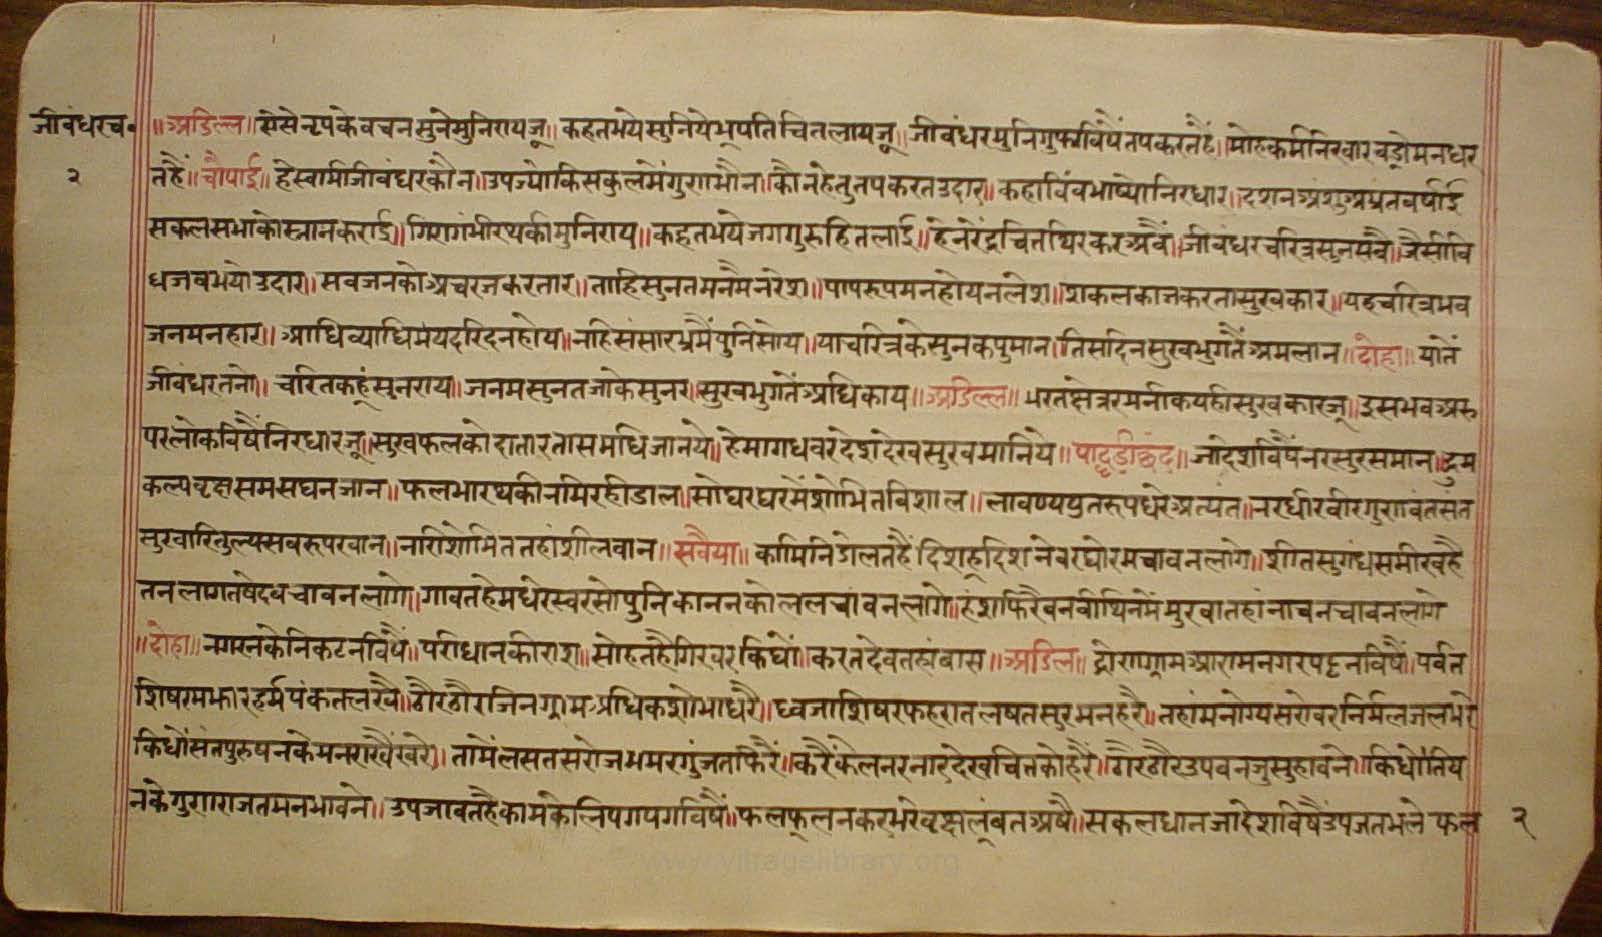 जीवंधरच॰
२
॥अडिल्ल॥ ऐसे नृप के वचन सुने मुनिराय जू॥ कहत भये सुनिये भूपति चित लाय जू॥ जीवंधर मुनि गुफा विषैं तप करत हैं॥ मोह कर्म निरवार बड़ो मन धर
त हैं॥ चौपाई॥ हे स्वामि जीवंधर कौन॥ उपज्यो किस कुल में गुण भौन॥ कौन हेतु तप करत उदार॥ कहा विंब भाष्यो निरधार॥ दशन अंशु अमृत वर्षाई
सकल सभा को स्नान कराई॥ गिरा गंभीर थकी मुनिराय॥ कहत भये जगगुरु हित लाई॥ हे नरेंद्र चित थिर कर अबै॥ जीवंधर चरित्र सुन सबै॥ जैसी वि
ध जब भयो उदार॥ सब जन को अचरज करतार॥ ताहि सुनत मन मै नरेश॥ पाप रूप मन होय न लेश॥ शकल काज करता सुखकार॥ यह चरित्र भव
जनमनहार॥ आधि व्याधि भय दरिद न होय॥ नहि संसार भ्रमैं पुनि सोय॥ या चरित्र के सुनक पुमान॥ तिस दिन सुख भुगतैं अमलान॥ दोहा॥ यातें
जीवंधर तनो॥ चरित कहूं सुन राय॥ जनम सुनत जाके सु नर॥ सुख भुगतें अधिकाय॥ अडिल्ल॥ भरत क्षेत्र रमनीक यही सुखकार जू॥ इस भव अरु
परलोक विषैं निरधार जू॥ सुख फल को दातार तास मधि जानये॥ हेमागध वर देश देख सुख मानिये॥ पाद्धड़ी छंद॥ जा देश विषैं नर सुर समान॥ द्रुम
कल्प वृक्ष सम सघन जान॥ फल भार थकी नमि रही डाल॥ सो घर घर में शोभित विशाल॥ लावण्य युत रूप धरे अत्यंत॥ नर धीर वीर गुणवंत संत
सुरवारि तुल्य सब रूप खान॥ नारी शोभित तहां शीलवान॥ सवैया॥ कामिनि डोलत हैं दिशहू दिश नेवर घोर मचावन लागे॥ शीत सुगंध समीर वहै
तन लागत षेद बचावन लागे॥ गावत हे मधुरे स्वर सो पुनि कानन कोलल चावन लागे॥ हंश फिरै वन वीथिन में मुरवा तहां नाच नचावन लागे
॥दोहा॥ नगरन के निकटन विषैं॥ परी धान की राश॥ सोहत है गिरवर किधौं॥ करत देव तहां वास॥ अडिल॥ द्रोण ग्राम आराम नगर पट्टन विषैं॥ पर्वत
शिषर मझार हर्म पंकत लखै॥ ठौर ठौर जिन ग्राम अधिक शोभा धरै॥ ध्वजा शिषर फहरात लषत सुर मन हरै॥ तहां मनोग्य सरोवर निर्मल जल भरे
किधों संत पुरुषन के मन राखैं खरे॥ तामें लसत सरोज भ्रमर गुंजत फिरैं॥ करैं केल नर नार देख चित को हरैं॥ ठौर ठौर उपवन जु सुहावने॥ किधों तिय
न के गुण राजत मन भावने॥ उपजावत है काम केलि पग पग विषैं॥ फल फूलन कर भरे वृक्ष लूंबत अषै॥ सकल धान जा देश विषैं उपजत भले फल
२
www.vitragelibrary.org